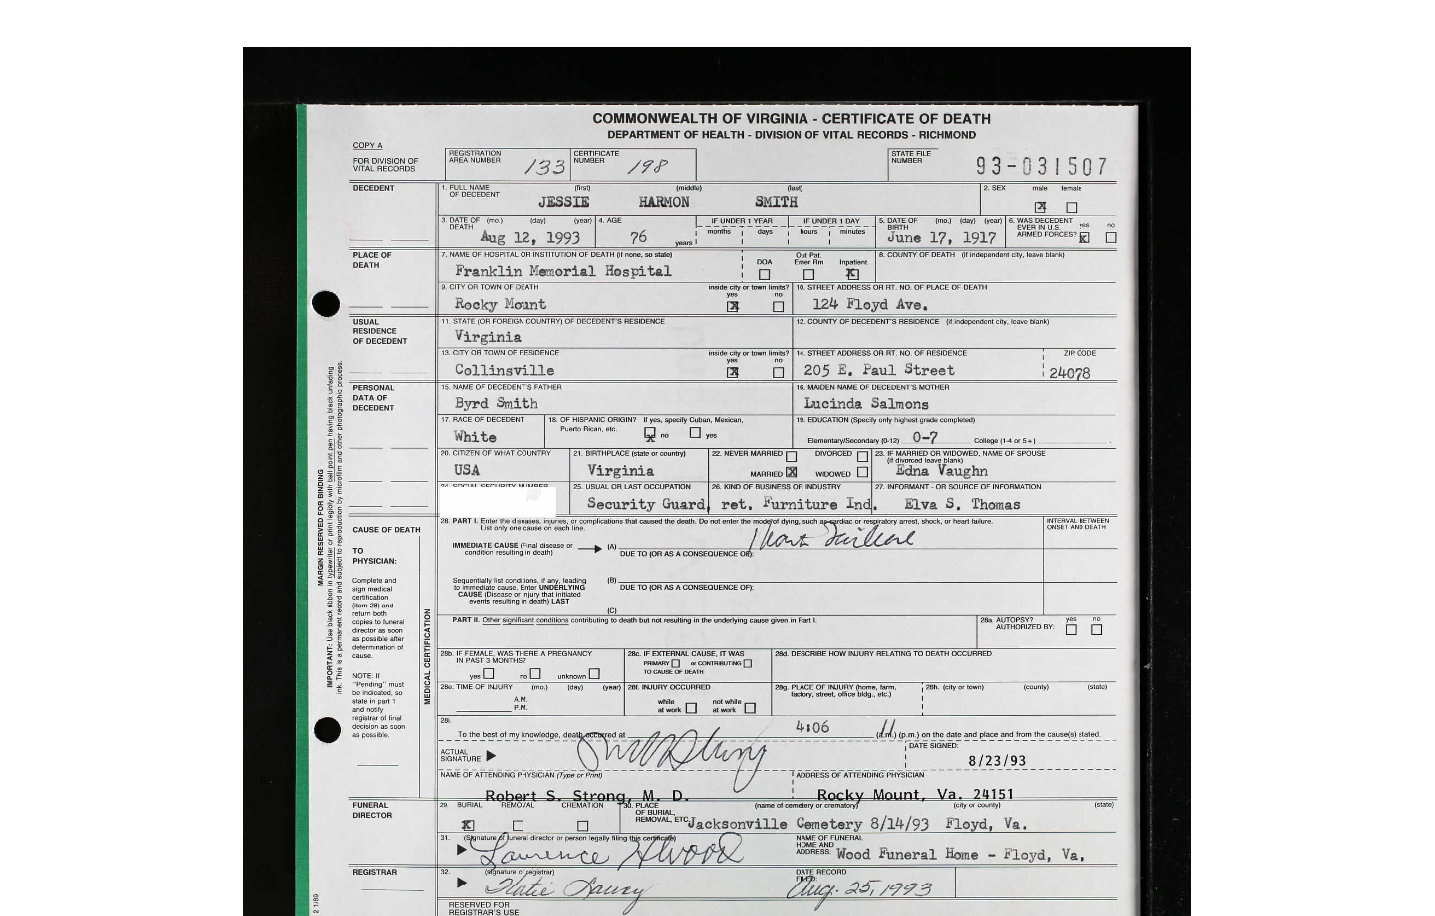 COMMONWEALTH OF VIRGINIA - CERTIFICATE OF DEATH
DEPARTMENT OF HEALTH - DIVISION OF VITAL RECORDS - RICHMOND
COPY A
FOR DIVISION OF VITAL RECORDS
REGISTRATION AREA NUMBER 133
CERTIFICATE NUMBER 198
STATE FILE NUMBER 93-031507
DECEDENT
1. FULL NAME OF DECEDENT (first) (middle) (last)
JESSIE HARMON SMITH
2. SEX male female
3. DATE OF DEATH (mo.) (day) (year)
Aug 12, 1993
4. AGE
76 years
IF UNDER 1 YEAR months days
IF UNDER 1 DAY hours minutes
5. DATE OF BIRTH (mo.) (day) (year)
June 17, 1917
6. WAS DECEDENT EVER IN U.S. ARMED FORCES? yes no
PLACE OF DEATH
7. NAME OF HOSPITAL OR INSTITUTION OF DEATH (if none, so state)
Franklin Memorial Hospital
DOA
Out Pat. Emer Rm
Inpatient
8. COUNTY OF DEATH (if independent city, leave blank)
9. CITY OR TOWN OF DEATH
Rocky Mount
inside city or town limits? yes no
10. STREET ADDRESS OR RT. NO. OF PLACE OF DEATH
124 Floyd Ave.
USUAL RESIDENCE OF DECEDENT
11. STATE (OR FOREIGN COUNTRY) OF DECEDENT'S RESIDENCE
Virginia
12. COUNTY OF DECEDENT'S RESIDENCE (if independent city, leave blank)
13. CITY OR TOWN OF RESIDENCE
Collinsville
inside city or town limits? yes no
14. STREET ADDRESS OR RT. NO. OF RESIDENCE
205 E. Paul Street
ZIP CODE
24078
PERSONAL DATA OF DECEDENT
15. NAME OF DECEDENT'S FATHER
Byrd Smith
16. MAIDEN NAME OF DECEDENT'S MOTHER
Lucinda Salmons
17. RACE OF DECEDENT
White
18. OF HISPANIC ORIGIN? If yes, specify Cuban, Mexican, Puerto Rican, etc.
no yes
19. EDUCATION (Specify only highest grade completed)
Elementary/Secondary (0-12) 0-7 College (1-4 or 5+)
20. CITIZEN OF WHAT COUNTRY
USA
21. BIRTHPLACE (state or country)
Virginia
22. NEVER MARRIED DIVORCED
MARRIED WIDOWED
23. IF MARRIED OR WIDOWED, NAME OF SPOUSE (if divorced leave blank)
Edna Vaughn
24. SOCIAL SECURITY NUMBER
25. USUAL OR LAST OCCUPATION
Security Guard, ret.
26. KIND OF BUSINESS OF INDUSTRY
Furniture Ind.
27. INFORMANT - OR SOURCE OF INFORMATION
Elva S. Thomas
CAUSE OF DEATH
TO PHYSICIAN:
Complete and sign medical certification (item 28) and return both copies to funeral director as soon as possible after determination of cause.
NOTE: If "Pending" must be indicated, so state in part 1 and notify registrar of final decision as soon as possible.
MARGIN RESERVED FOR BINDING
IMPORTANT: Use black ribbon in typewriter or print legibly with ball point pen having black unfading
ink. This is a permanent record and subject to reproduction by microfilm and other photographic process.
MEDICAL CERTIFICATION
28. PART I. Enter the diseases, injuries, or complications that caused the death. Do not enter the mode of dying, such as cardiac or respiratory arrest, shock, or heart failure.
List only one cause on each line.
INTERVAL BETWEEN ONSET AND DEATH
IMMEDIATE CAUSE (Final disease or condition resulting in death)
(A) Heart Failure
DUE TO (OR AS A CONSEQUENCE OF):
Sequentially list conditions, if any, leading to immediate cause. Enter UNDERLYING CAUSE (Disease or injury that initiated events resulting in death) LAST
(B)
DUE TO (OR AS A CONSEQUENCE OF):
(C)
PART II. Other significant conditions contributing to death but not resulting in the underlying cause given in Part I.
28a. AUTOPSY? AUTHORIZED BY: yes no
28b. IF FEMALE, WAS THERE A PREGNANCY IN PAST 3 MONTHS?
yes no unknown
28c. IF EXTERNAL CAUSE, IT WAS
PRIMARY or CONTRIBUTING
TO CAUSE OF DEATH
28d. DESCRIBE HOW INJURY RELATING TO DEATH OCCURRED
28e. TIME OF INJURY (mo.) (day) (year)
A.M.
P.M.
28f. INJURY OCCURRED
while at work not while at work
28g. PLACE OF INJURY (home, farm, factory, street, office bldg., etc.)
28h. (city or town) (county) (state)
28i.
To the best of my knowledge, death occurred at 4:06 (a.m.) (p.m.) on the date and place and from the cause(s) stated.
ACTUAL SIGNATURE
DATE SIGNED:
8/23/93
NAME OF ATTENDING PHYSICIAN (Type or Print)
Robert S. Strong, M. D.
ADDRESS OF ATTENDING PHYSICIAN
Rocky Mount, Va. 24151
FUNERAL DIRECTOR
29. BURIAL REMOVAL CREMATION
30. PLACE OF BURIAL, REMOVAL, ETC. (name of cemetery or crematory) (city or county) (state)
Jacksonville Cemetery 8/14/93 Floyd, Va.
31. (Signature of funeral director or person legally filing this certificate)
Laurence Atwood
NAME OF FUNERAL HOME AND ADDRESS:
Wood Funeral Home - Floyd, Va.
REGISTRAR
32. (signature of registrar)
Katie
DATE RECORD FILED:
Aug. 25, 1993
RESERVED FOR REGISTRAR'S USE
2 1/89